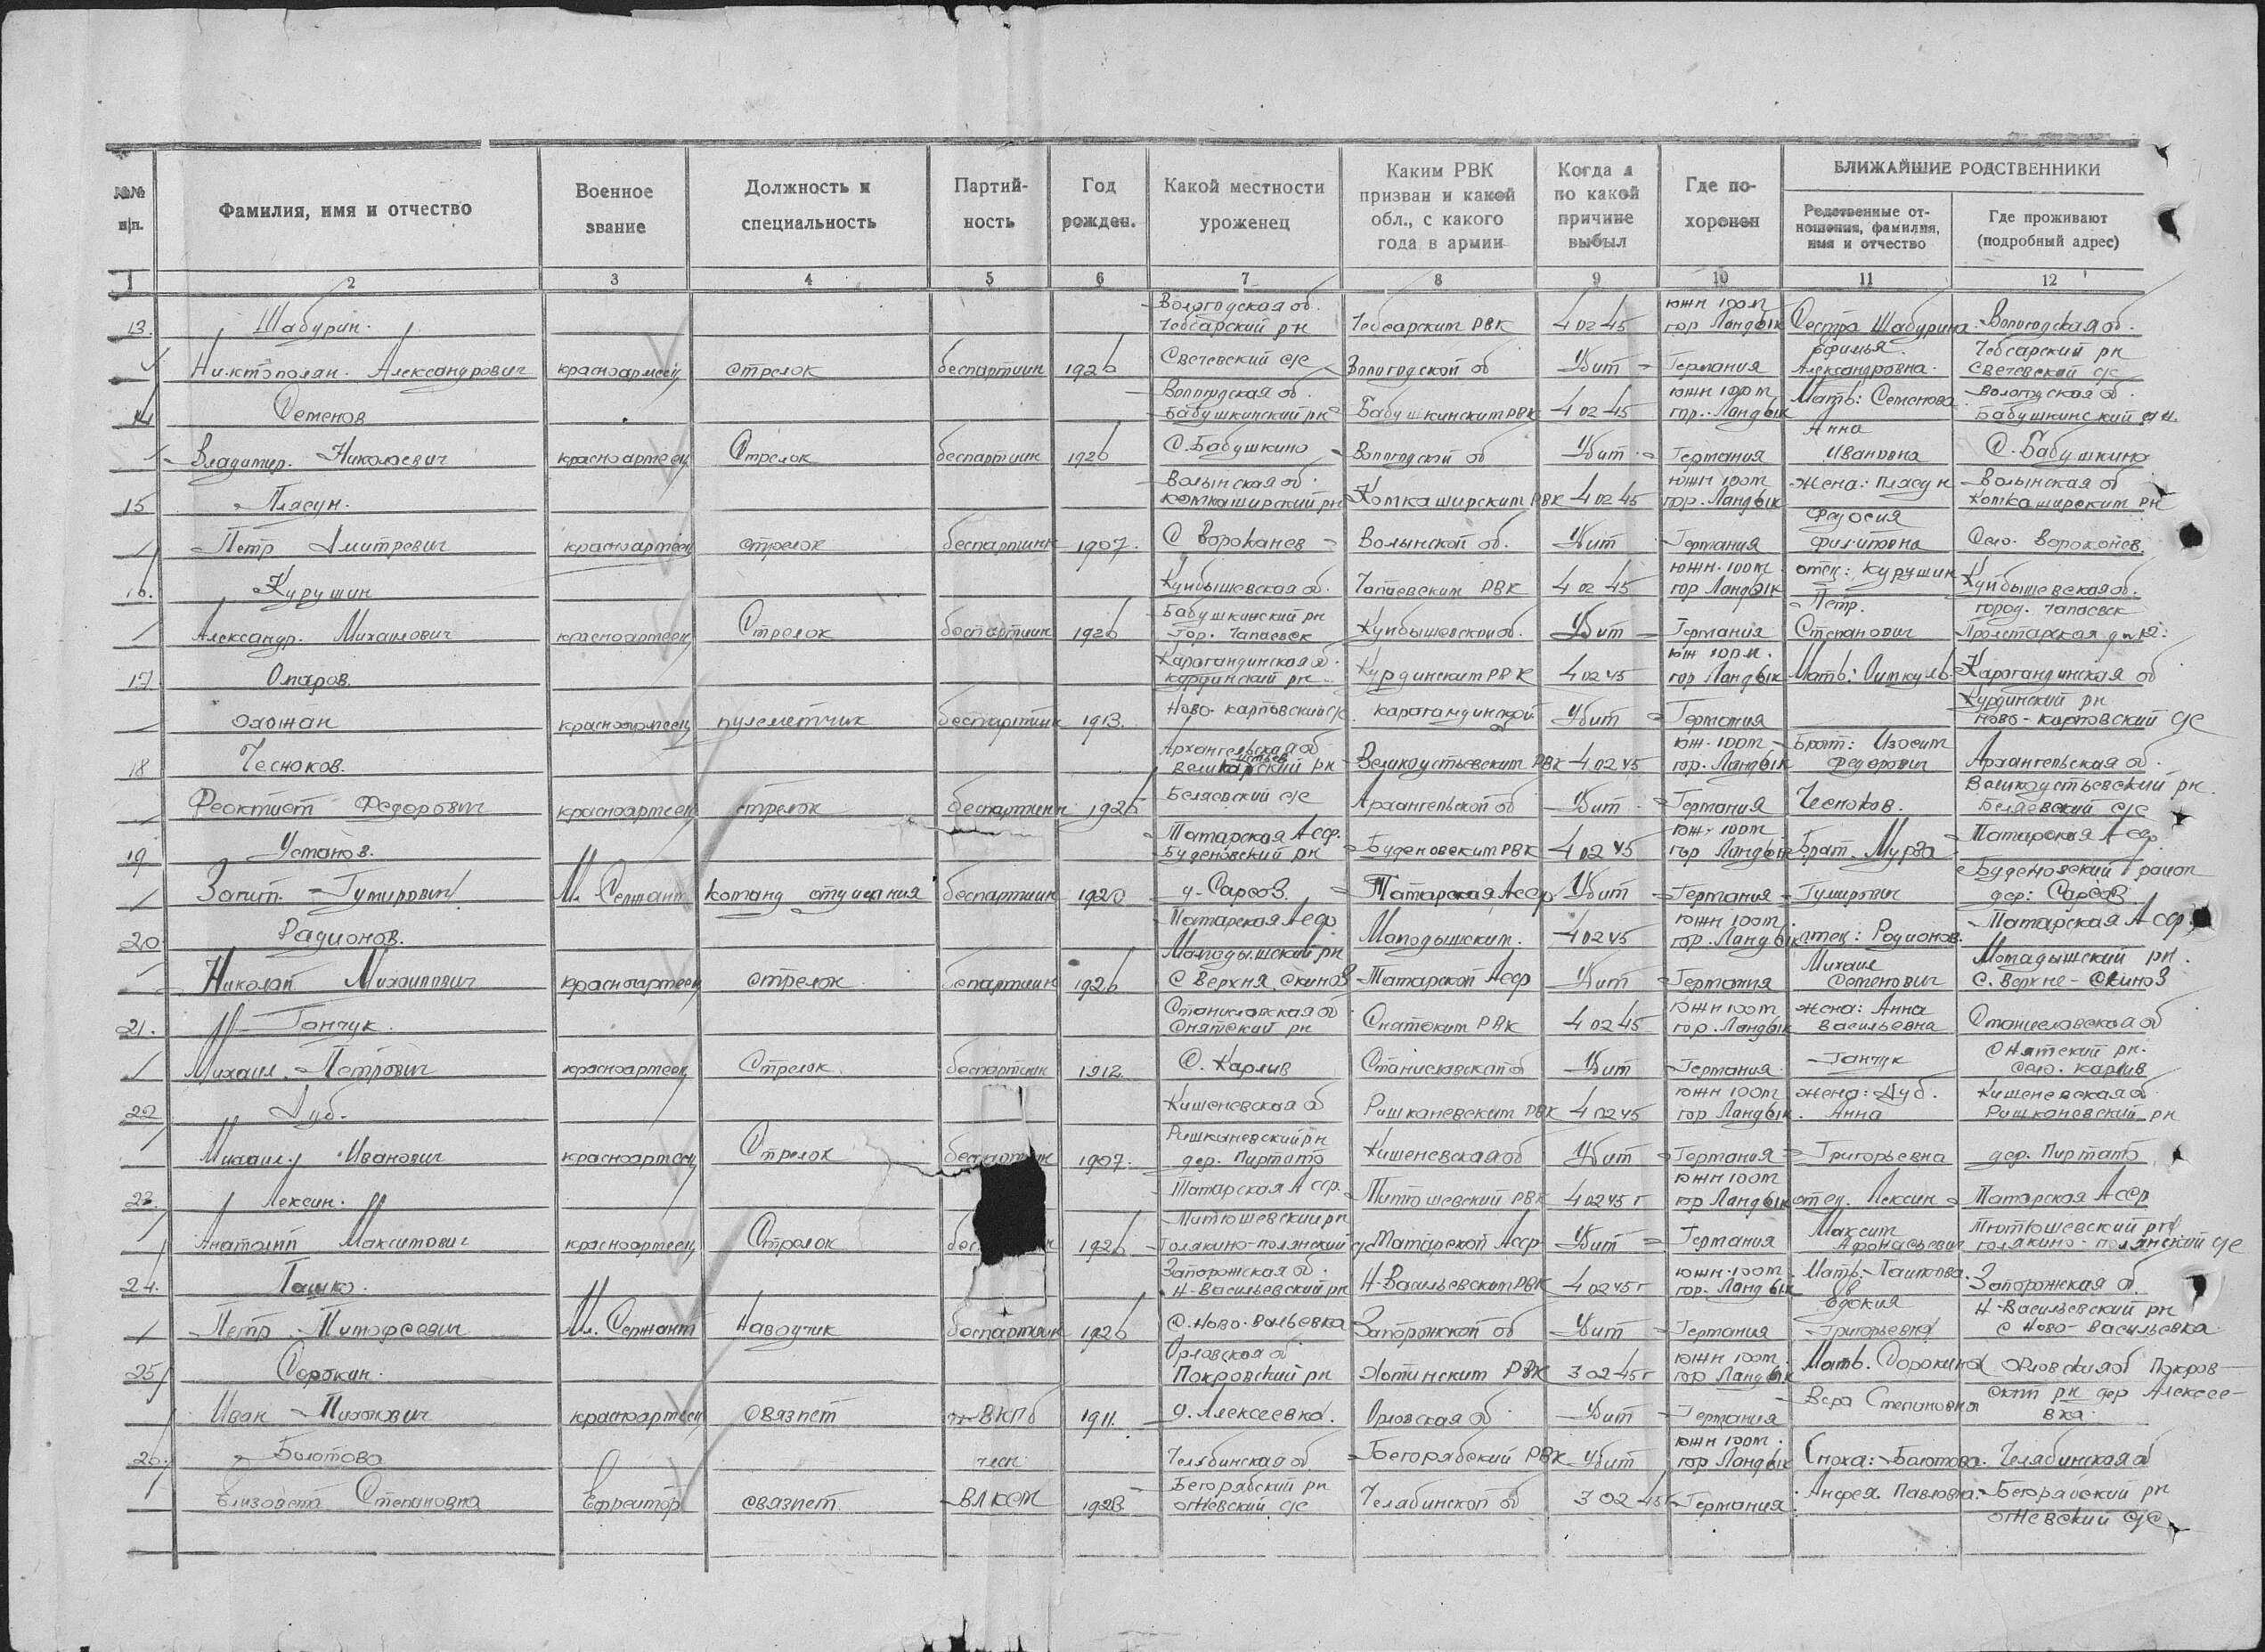 №№ п/п.
Фамилия, имя и отчество
Военное звание
Должность и специальность
Партийность
Год рожден.
Какой местности уроженец
Каким РВК призван и какой обл., с какого года в армии
Когда и по какой причине выбыл
Где похоронен
БЛИЖАЙШИЕ РОДСТВЕННИКИ
Родственные отношения, фамилия, имя и отчество
Где проживают (подробный адрес)
1 2 3 4 5 6 7 8 9 10 11 12
Вологодская об. южн 100м
13. Шабурин. Чебсарский рн Чебсарским РВК 4 02 45 гор Ландбык Сестра Шабурина Вологодская об.
Свечевский с/с Ефимья Чебсарский рн
Александрович красноармеец стрелок беспартийн 1926 Вологодской об Убит Германия Александровна. Свечевский с/с
Вологодская об. южн 100м Мать: Семенова Вологодская об.
14 Семенов Бабушкинский рн Бабушкинским РВК 4 02 45 гор. Ландбык Бабушкинский рн.
Анна
Владимир. Николаевич красноармеец Стрелок беспартийн 1926 С. Бабушкино Вологодской об Убит Германия Ивановна С. Бабушкино
Волынская об. южн 100м Жена: Пласун Волынская об
15 Пласун. Комкаширский рн Комкаширским РВК 4 02 45 гор. Ландбык Комкаширским рн
Петр Дмитревич красноармеец стрелок беспартийн 1907. С Вороканев Волынской об. Убит Германия Филиповна Село. Вороконев.
южн. 100м отец: Курушин
16. Курушин Куйбышевская об. Чапаевским РВК 4 02 45 гор Ландбык Петр. Куйбышевская об.
Бабушкинский рн город. Чапаевск
Александр. Михайлович красноармеец Стрелок беспартийн 1926 гор. Чапаевск Куйбышевской об. Убит Германия Степанович
Карагандинская об. юж 100м.
17 Омаров. Курдинский рн Курдинским РВК 4 02 45 гор Ландбык Мать: Карагандинская об
Ново-Карповский с/с Курдинский рн
Охожан красноармеец пулеметчик беспартийн 1913. Карагандинской Убит Германия Ново-Карповский с/с
Архангельская об юж. 100м Брат: Изосим
18 Чесноков. рн Великоустьевским РВК 4 02 45 гор. Ландбык Федорович Архангельская об.
Беляевский с/с Великоустьевский рн.
Феоктист Федорович красноармеец стрелок беспартийн 1926 Архангельской об Убит Германия Чесноков. Беляевский с/с
Татарская Асср. юж. 100м Татарская Асср
19 Усманов. Буденовский рн Буденовским РВК 4 02 45 гор Ландбык Брат. Мурза
Буденовский район
Гумирович Мл. Сержант команд отделения беспартийн 1920 д-Сарсов. Татарская Асср Убит Германия Гумирович дер: Сарсов.
Татарская Асср южн 100м Татарская Асср
20 Радионов. Мамадышским. 4 02 45 гор. Ландбык отец: Родионов.
Мамадышский рн Михаил Мамадышский рн.
Николай Михаилович красноармеец стрелок беспартийн 1926 С Верхня. Скинов Татарской Асср Убит Германия Семенович с. Верхне-Скинов
Станиславская об южн 100м жена: Анна
21. Ганчук. Снятский рн Снятским РВК 4 02 45 гор. Ландбык Васильевна Станиславская об
Снятский рн.
Михаил. Петрович красноармеец Стрелок беспартийн 1912. С. Карлив Станиславской об Убит Германия Ганчук село. Карлив
южн 100м жена: Дуб. Кишеневская об.
22 Дуб. Кишеневская об Ришканевским РВК 4 02 45 гор Ландбык. Анна Ришканевский рн
Ришканевский рн
Михаил Иванович красноармеец Стрелок 1907. дер. Пиртато Кишеневская об Убит Германия Григорьевна дер. Пиртато
Татарская Асср. южн 100м
23. Лексин. РВК 4 02 45 г гор Ландбык отец. Лексин Татарская Асср
рн Максим рн
Анатолий Максимович красноармеец Стрелок 1926 Голякино-полянский с/с Татарской Асср Убит Германия Афонасьевич Голякино-полянский с/с
Запорожская об. южн. 100м Мать.
24. Ташко. Н-Васильевский рн Н-Васильевским РВК 4 02 45 г гор. Ландбык Запорожская об.
Едокия Н-Васильевский рн
Петр Тимофеевич Мл. Сержант Наводчик беспартийн 1926 Запорожской об Убит Германия Григорьевна с Ново-Васильевка
Орловская об южн 100м
25 Сорокин. Покровский рн РВК 3 02 45 г гор Ландбык Мать. Сорокина Орловская об Покров-
Вера Степановна ский рн дер Алексее-
Иван красноармеец Связист ВКПб 1911. д. Алексеевка. Орловская об Убит Германия вка.
южн 100м.
26. Болотова член Челябинская об РВК Убит гор Ландбык Сноха: Болотова. Челябинская об
рн
Елизовета Степановна Ефрейтор связист ВЛКСМ 1923 Огневский с/с Челябинской об 3 02 45 Германия Павловна.
Огневский с/с